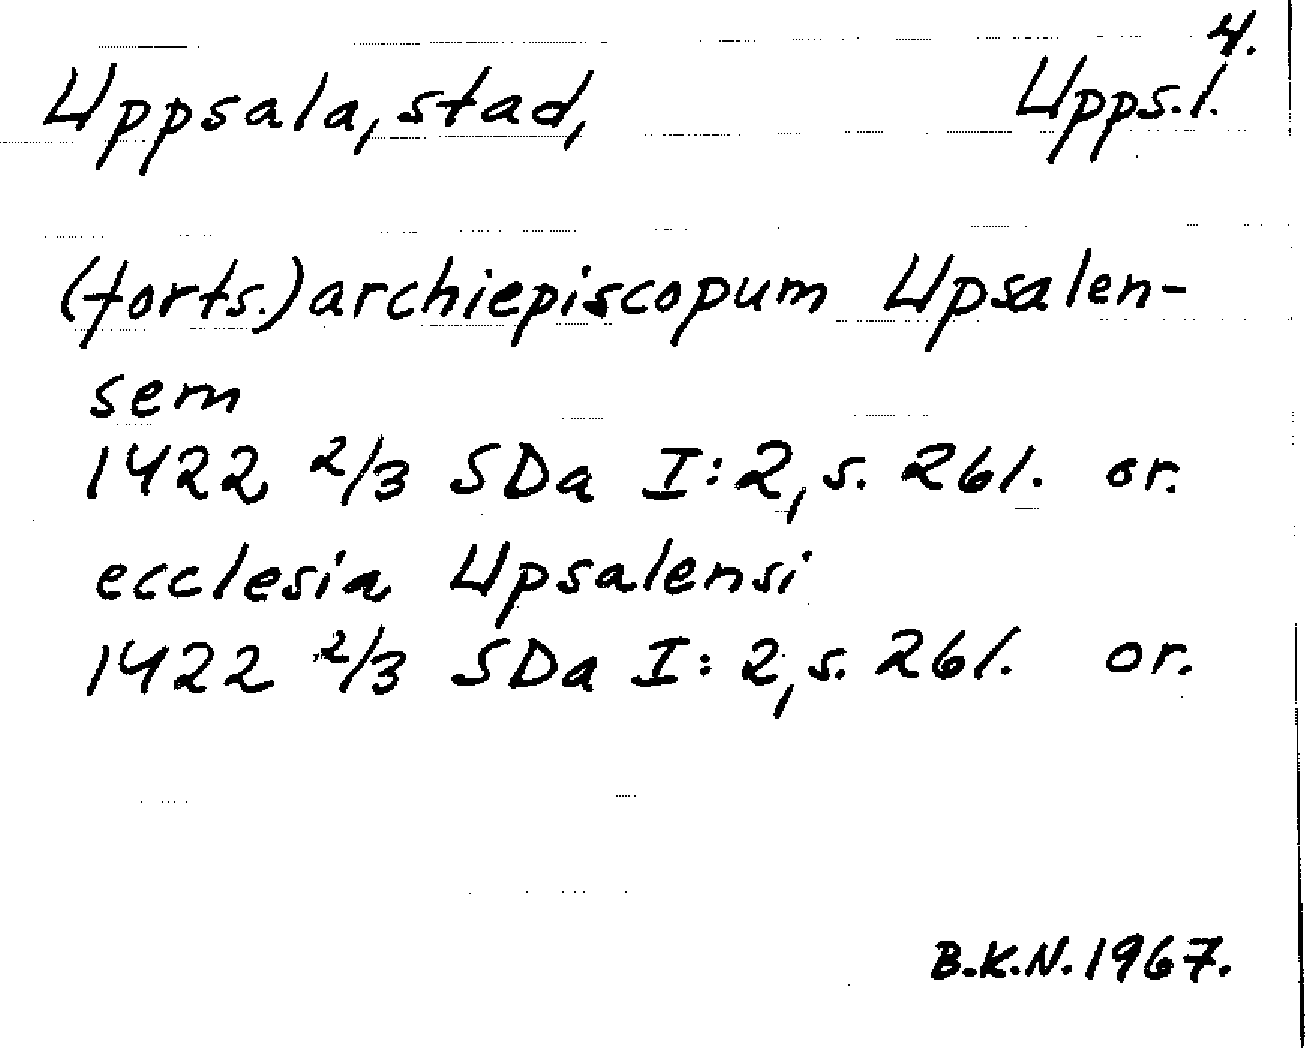 4.
Uppsala, stad, Upps.l.
(forts.) archiepiscopum Upsalen-
sem
1422 2/3 SDa I:2, s. 261. or.
ecclesia Upsalensi
1422 2/3 SDa I:2, s. 261. or.
B.K.N. 1967.